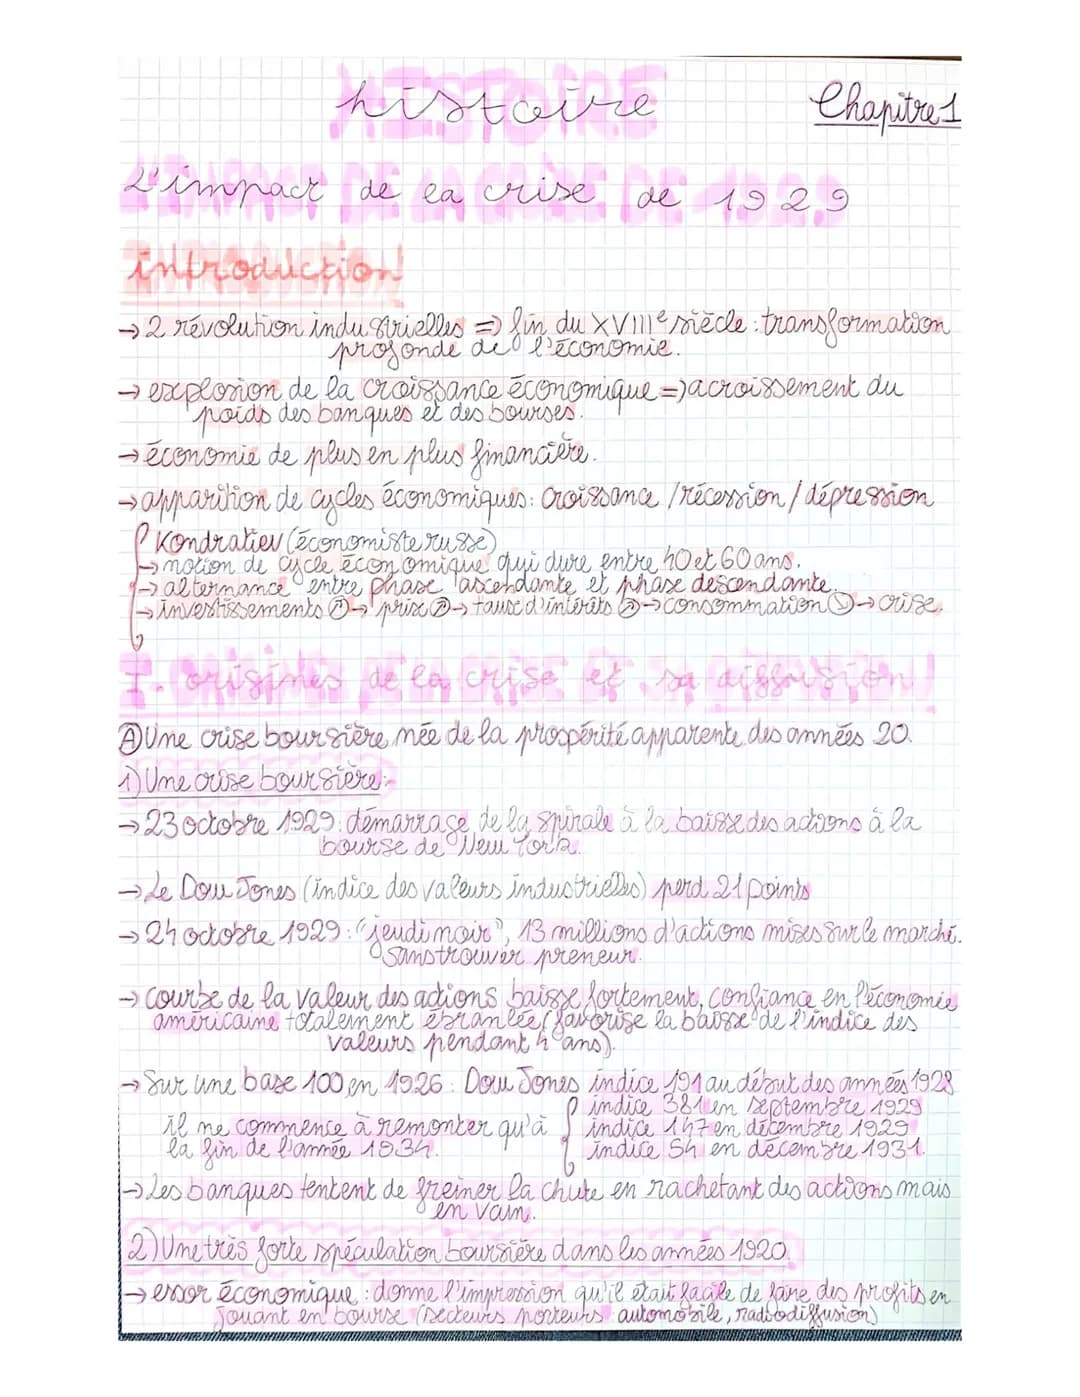 histoire
Chapitre 1
L'impact de la crise de 1929
introduction
→ 2 révolution industrielles => fin du XVIIIe siècle : transformation
profonde de l'économie.
→ explosion de la croissance économique => acroissement du
poids des banques et des bourses.
→ économie de plus en plus financière.
→ apparition de cycles économiques : croissance / récession / dépression
Kondratiev (économiste russe)
→ notion de cycle économique qui dure entre 40 et 60 ans.
→ alternance entre phase ascendante et phase descendante.
→ investissements ↗ → prix ↗ → taux d'intérêts ↗ → consommation ↘ → crise.
I. origines de la crise et sa diffusion !
A Une crise boursière née de la prospérité apparente des années 20.
1) Une crise boursière :
→ 23 octobre 1929 : démarrage de la spirale à la baisse des actions à la
bourse de New York.
→ Le Dow Jones (indice des valeurs industrielles) perd 21 points
→ 24 octobre 1929 : "jeudi noir", 13 millions d'actions mises sur le marché.
sans trouver preneur.
→ courbe de la valeur des actions baisse fortement, confiance en l'économie
américaine totalement ébranlée (favorise la baisse de l'indice des
valeurs pendant 4 ans).
→ Sur une base 100 en 1926 : Dow Jones indice 191 au début des années 1928
indice 381 en septembre 1929
il ne commence à remonter qu'à indice 147 en décembre 1929
la fin de l'année 1934. indice 54 en décembre 1931.
→ Les banques tentent de freiner la chute en rachetant des actions mais
en vain.
2) Une très forte spéculation boursière dans les années 1920.
→ essor économique : donne l'impression qu'il était facile de faire des profits en
jouant en bourse (secteurs porteurs : automobile, radiodiffusion)